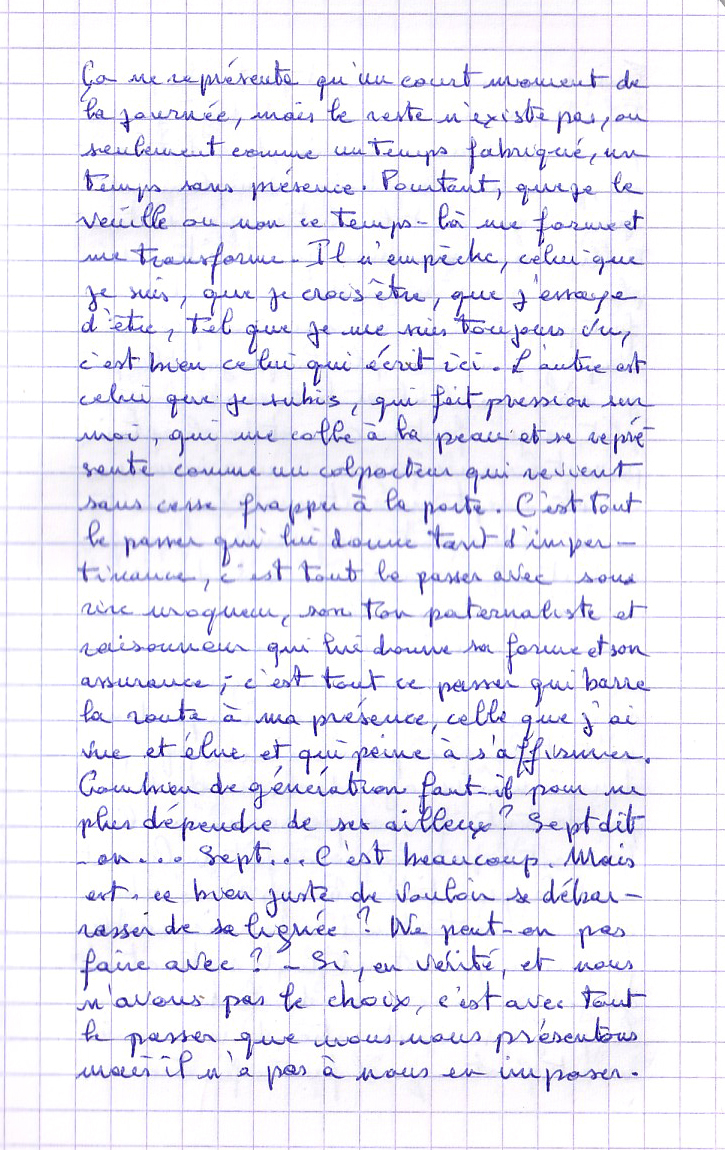 Ça ne représente qu'un court moment de
la journée, mais le reste n'existe pas, ou
seulement comme un temps fabriqué, un
temps sans présence. Pourtant, que je le
veuille ou non ce temps-là me forme et
me transforme. Il n'empêche, celui que
je suis, que je crois être, que j'essaye
d'être, tel que je me suis toujours vu,
c'est bien celui qui écrit ici. L'autre est
celui que je subis, qui fait pression sur
moi, qui me colle à la peau et se repré
sente comme un colporteur qui revient
sans cesse frapper à la porte. C'est tout
le passer qui lui donne tant d'imper-
tinance, c'est tout le passer avec sous
rire moqueur, son ton paternaliste et
raisonneur qui lui donne sa forme et son
assurance ; c'est tout ce passer qui barre
la route à ma présence, celle que j'ai
vue et élue et qui peine à s'affirmer.
Combien de génération faut-il pour ne
plus dépendre de ses ailleux ? Sept dit
-on... Sept... C'est beaucoup. Mais
est-ce bien juste de vouloir se débar-
rasser de sa lignée ? Ne peut-on pas
faire avec ? - Si, en vérité, et nous
n'avons pas le choix, c'est avec tout
le passer que nous nous présentons
mais il n'a pas à nous en imposer.